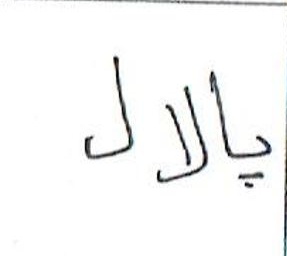 پالال